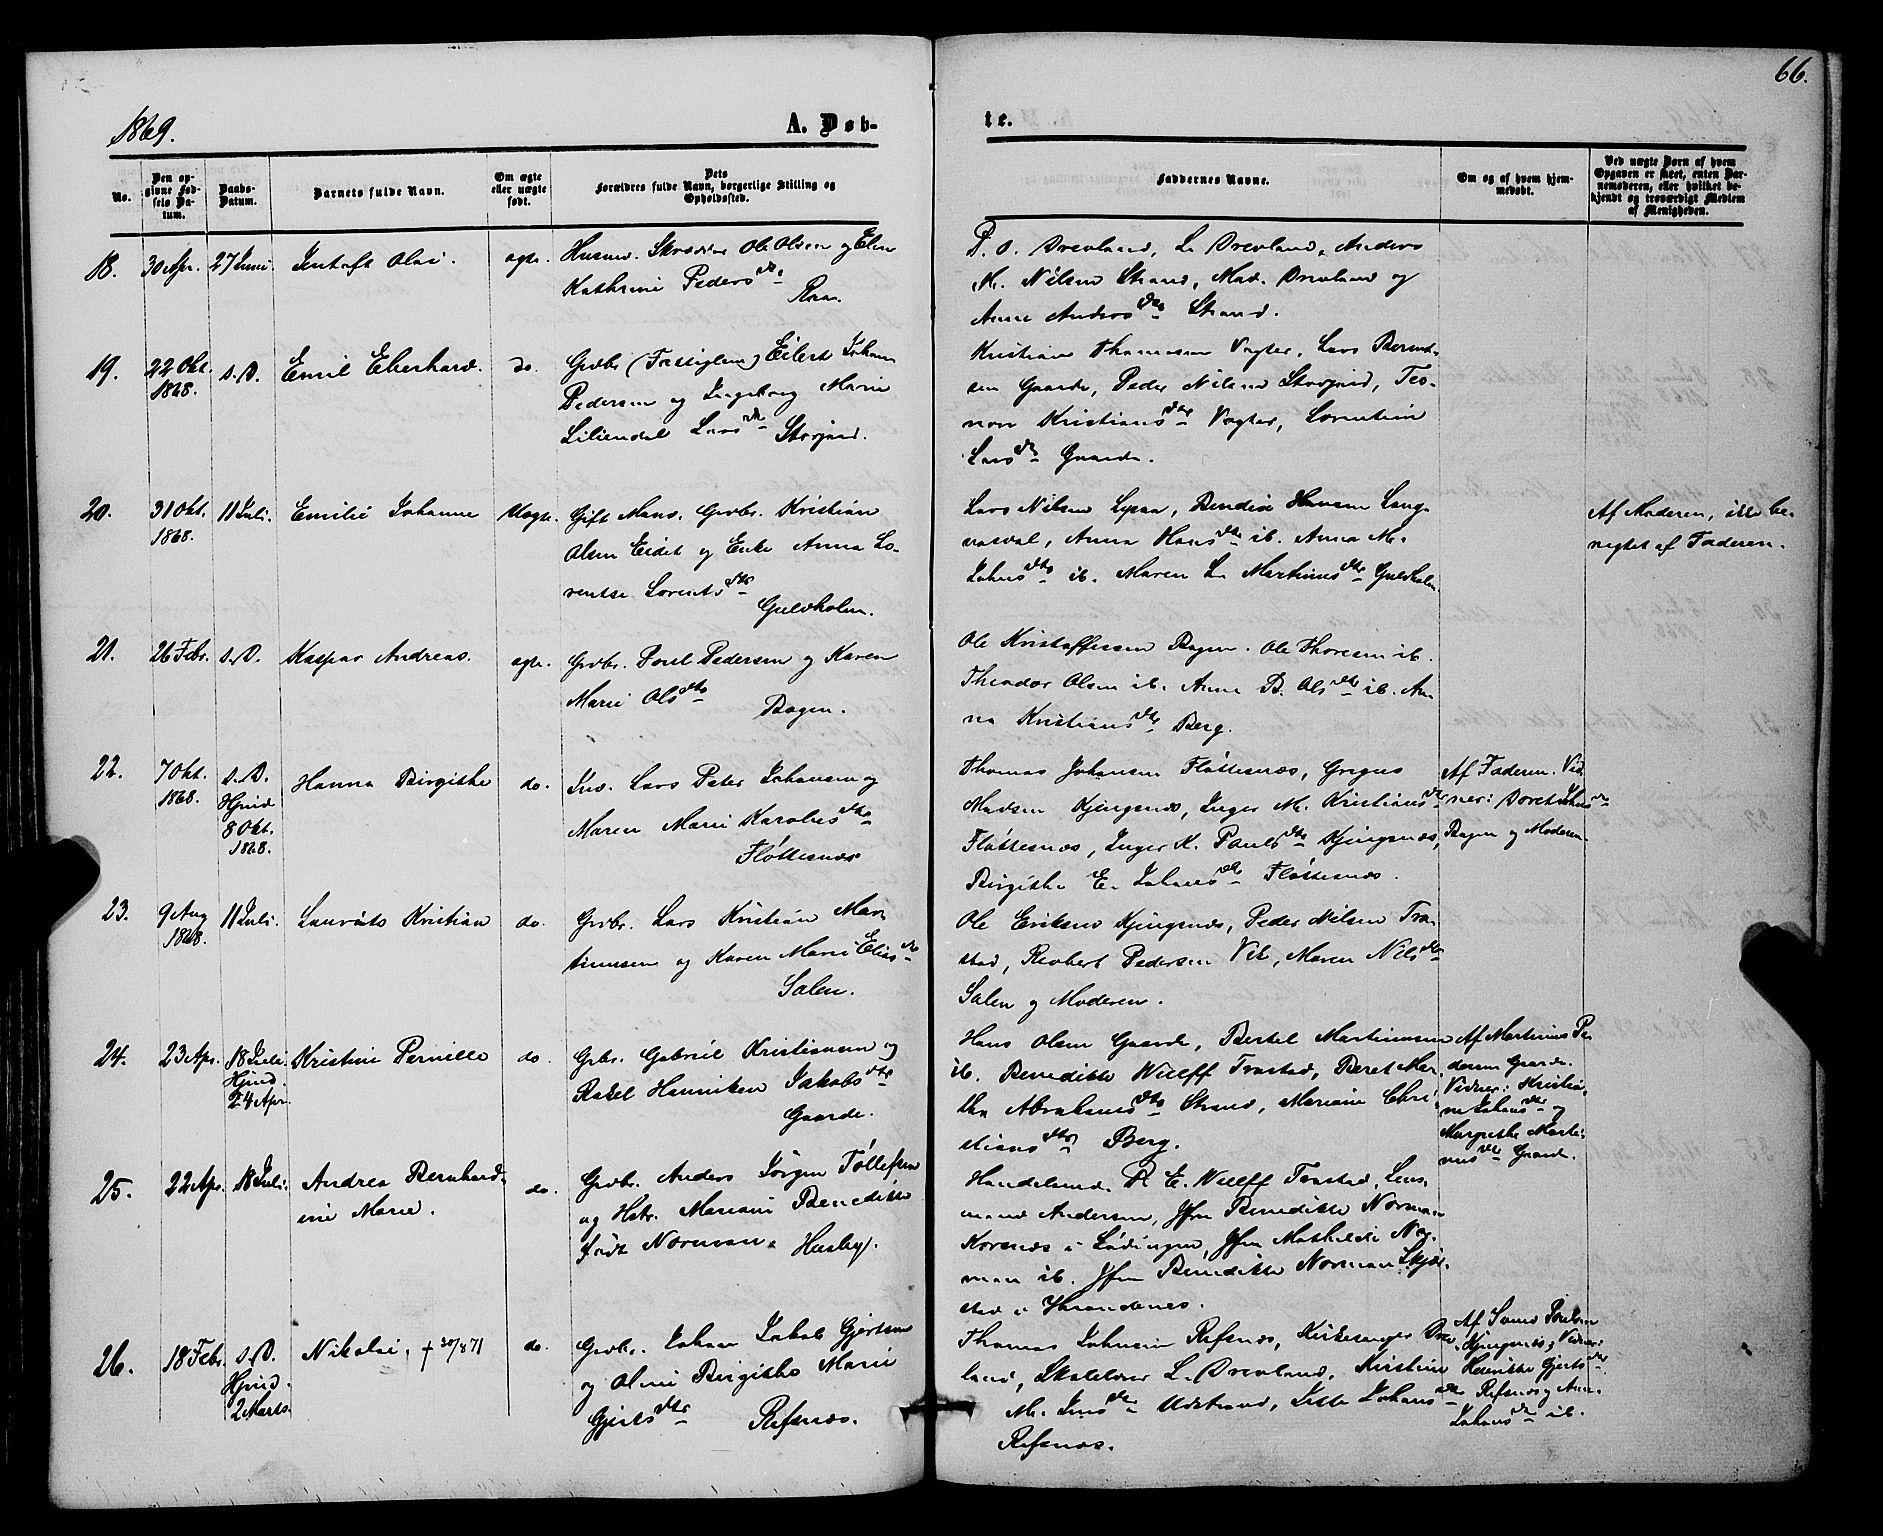 66.
1869.
A. Døb-
te.
No.
Den op-
givne Fød-
sels Da-
tum.
Daabs-
Datum.
Barnets fulde Navn.
Om ægte
eller uægte
født.
Dets
Forældres fulde Navn, borgerlige Stilling og
Opholdssted.
Faddernes Navne.
Om og af hvem hjem-
medøbt.
Ved uægte Børn af hvem
Opgaven er skeet, enten Bar-
nemoderen, eller hvilket be-
kjendt og troværdigt Medlem
af Menigheden.
18. 30 Apr. 27 Juni Jentoft Olai. ægte.
Husm. Skrædder Ole Olsen og Elen
Kathrine Peders dtr
Raa.
P. O. Drevland, L. Drevland, Anders
M. Nilsen Strand, Mad. Drevland og
Anne Anders dtr Strand.
19. 22 Okt. 1868. s. D. Emil Eberhard. do.
Grdbr. (Fattiglem) Eilert Johan
Pedersen og Ingeborg Marie
Liliendal Lars dtr Storjord.
Kristian Thomassen Vogter, Lars Berent-
sen Gaarde, Peder Nilsen Storjord,
Kristians dtr Vogter, Lorentine
Lars dtr Gaarde.
20. 31 Okt. 1868. 11 Juli. Emilie Johanne Uægte.
Gift Mand. Grdbr. Kristian
Olsen Eidet og Enke Anna Lo-
rentse Lorents dtr
Guldholm.
Lars Nilsen Bendix Hansen Lang-
vasval, Anna Hans dtr ib. Anna M.
Johns dtr ib. Maren L. Martinus dtr Guldholm
Af Moderen, ikke be-
negtet af Faderen.
21. 26 Febr. s. D. Kaspar Andreas. ægte.
Grdbr. Poul Pedersen og Karen
Marie Ols dtr
Bogen.
Ole Kristoffersen Bogen. Ole Thoresen ib.
Theodor Olsen ib. Anne B. Ols dtr ib. An-
na Kristians dtr Berg.
22. 7 Okt. 1868. s. D.
Hjmd
8 Okt.
1868.
Hanna Birgithe do.
Ins. Lars Peter Johansen og
Maren Marie Karolus dtr
Fløttesnæs
Thomas Johansen Fløttesnæs, Gregus
Madsen Kjengsnæs, Inger M. Kristians dtr
Fløttesnæs, Inger K. Pauls dtr Kjengsnæs,
Birgithe E. Johans dtr Fløttesnæs.
Af Faderen. Vid-
ner: Doret Johns dtr
Bogen og Moderen
23. 9 Aug 1868. 11 Juli. Laurits Kristian do.
Grdbr. Lars Kristian Mar-
tinussen og Karen Marie Elias dtr
Salen.
Ole Eriksen Kjengsnæs, Peder Nilsen Tra-
stad, Reobert Pedersen Vik, Maren Nils dtr
Salen og Moderen.
24. 23 Apr. 18 Juli.
Hjmd.
24 Apr.
Kristine Pernille do.
Grbr. Gabriel Kristiansen og
Rakel Henriken Jakobs dtr
Gaarde.
Hans Olsen Gaarde, Bertel Martinussen
ib. Benedikte Wulff Trastad, Beret Mar-
tha Abrahams dtr Strand, Mariane Chri-
stians dtr Berg.
Af Martinus Pe-
dersen Gaarde.
Vidner: Kristia-
ne Johans dtr og
Margrethe Marti-
nus dtr Gaarde.
25. 22 Apr. 18 Juli. Andrea Bernhard-
ine Marie. do.
Grdbr. Anders Jørgen Tøllefsen
og Hstr. Mariane Benedikte
født Norman. Husby.
Handelsmd. R. E. Wulff Trastad, Lens-
mand Andersen, Jfru Benedikte Norman
Korsnæs i Lødingen, Jfru Mathilde Nor-
man ib. Jfru Benedikte Norman Skjær-
stad i Trondenes.
26. 18 Febr. s. D.
Hjmd.
2 Marts.
Nikolai. † 30/8 71 do.
Grdbr. Johan Jakob Gjertsen
og Oline Birgithe Marie
Gjerts dtr Refsnæs.
Thomas Johnsen Refsnæs, Kirkesanger Dre-
land, Skolelærer L. Drevland, Kirstine
M. Jens dtr Udstrand, Johans dtr
Refsnæs.
Af
Kjengsnæs, Vidner
Henrikke Gjerts dtr
Refsnæs og Ane
Johans dtr ib.